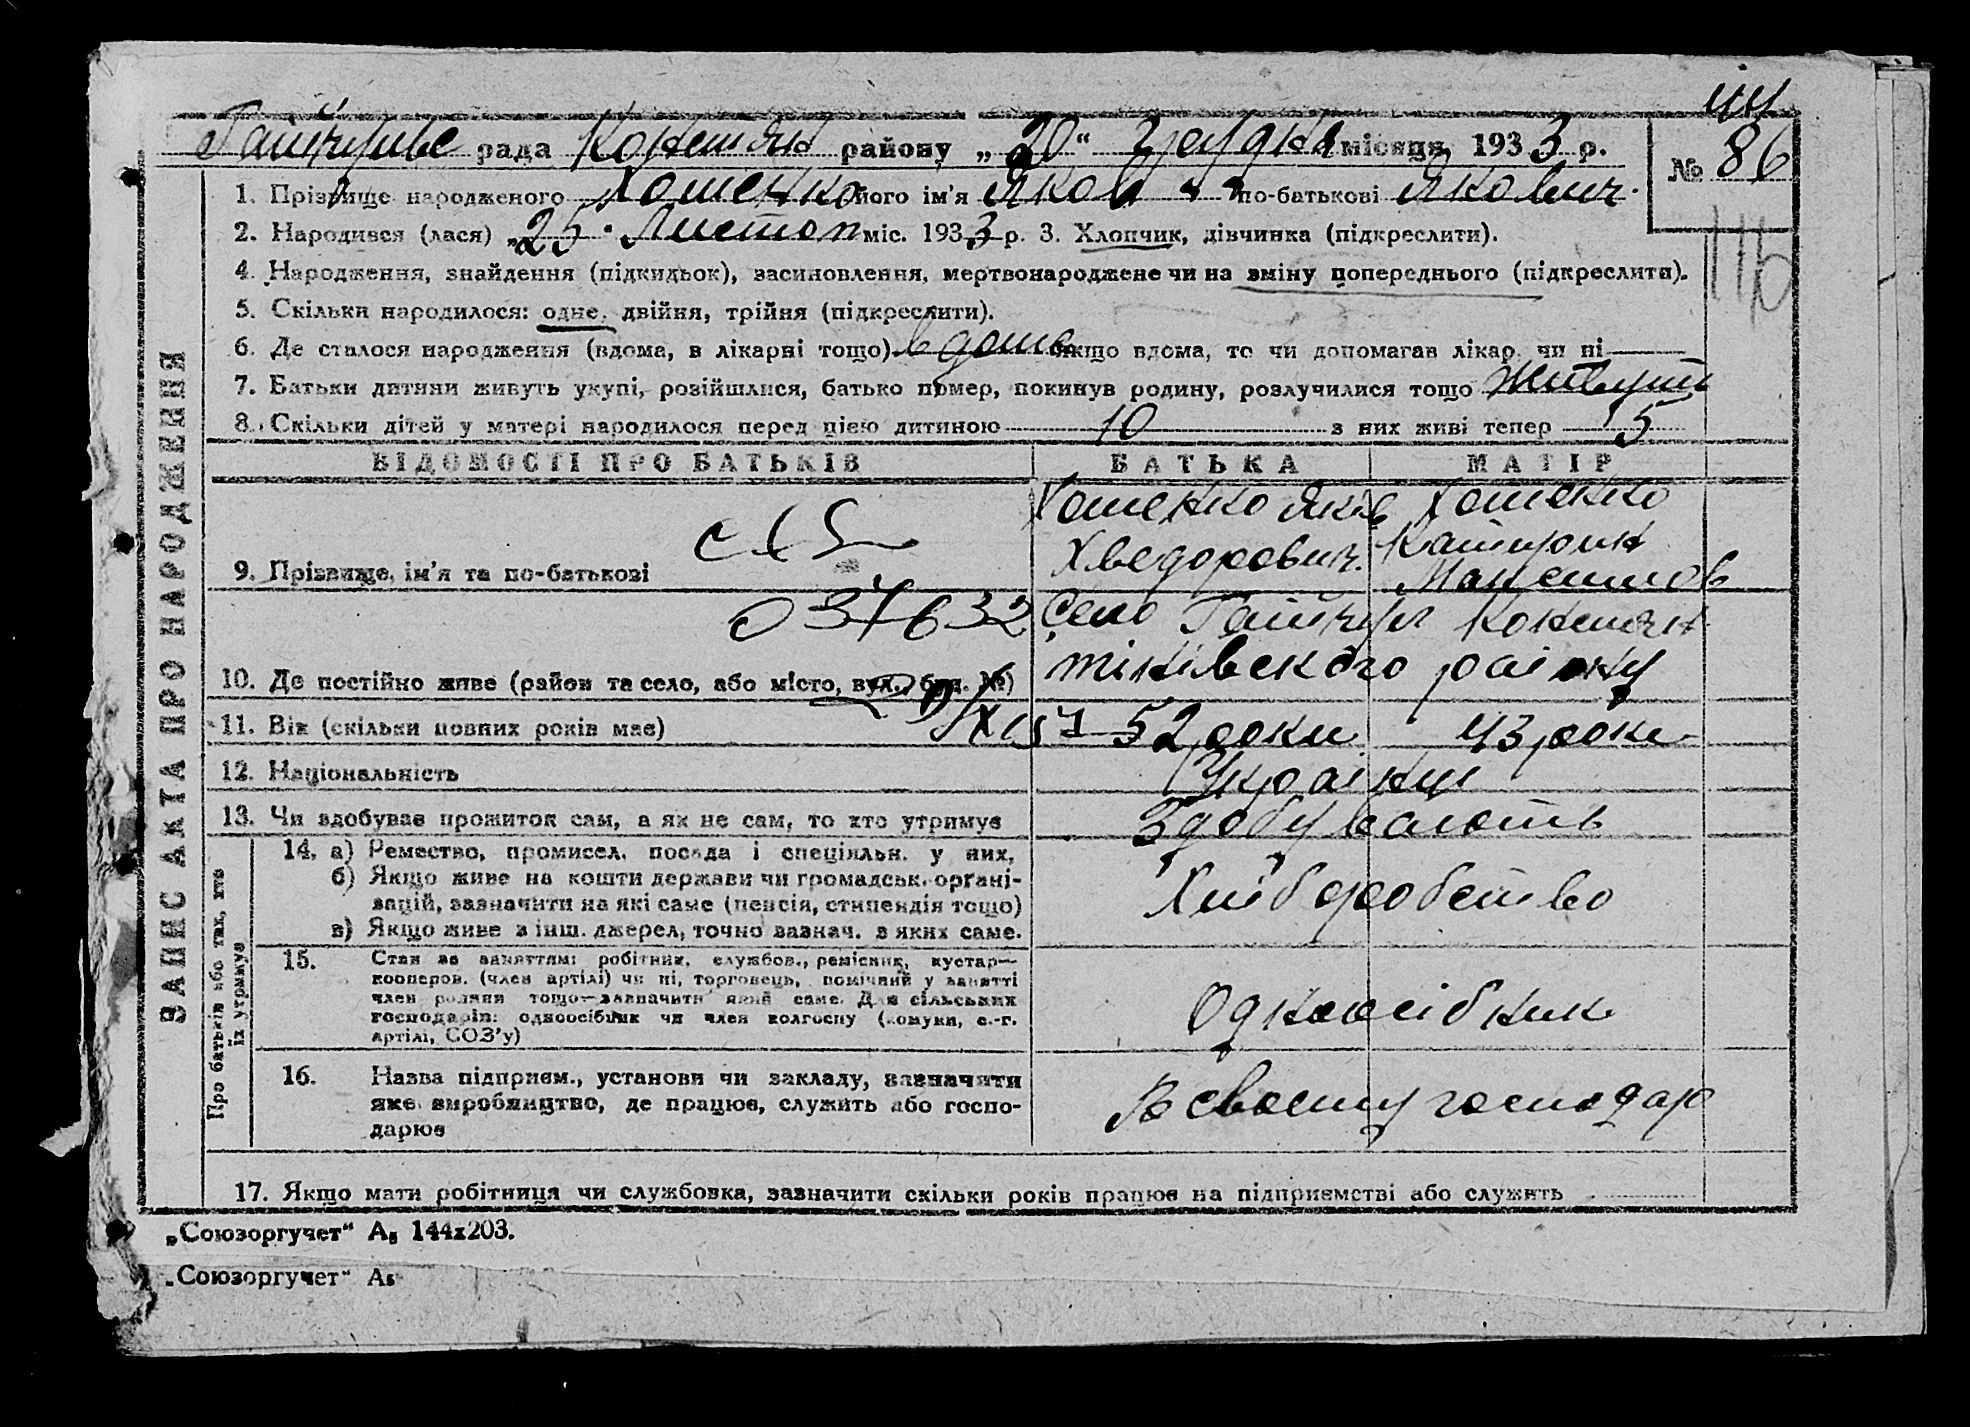 44
Гайчулье рада Константи району „20“ Грудня місяця 1933 р. № 86
1. Прізвище народженого Хоменко його ім'я Яков по-батькові Якович.
2. Народився (лася) „25. Листоп міс. 1933 р. 3. Хлопчик, дівчинка (підкреслити).
116
4. Народження, знайдення (підкидьок), засиновлення, мертвонароджене чи на зміну попереднього (підкреслити).
5. Скільки народилося: одне, двійня, трійня (підкреслити).
6. Де сталося народження (вдома, в лікарні тощо) в дома якщо вдома, то чи допомагав лікар чи ні
7. Батьки дитини живуть укупі, розійшлися, батько помер, покинув родину, розлучилися тощо Живуть
8. Скільки дітей у матері народилося перед цією дитиною 10 з них живі тепер 5
ВІДОМОСТІ ПРО БАТЬКІВ БАТЬКА МАТІР
Хоменко Яків Хоменко
Хведорович. Катирина
9. Прізвище, ім'я та по-батькові Максимов
037632 Село Гайчул Констан
10. Де постійно живе (район та село, або місто, вул., буд. №) тінівського раіону
11. Вік (скільки повних років має) 52 роки 43 роки
12. Національність Украінци
13. Чи здобуває прожиток сам, а як не сам, то хто утримує Здобувають
14. а) Ремество, промисел, посада і спеціяльн. у них,
б) Якщо живе на кошти держави чи громадськ. органі-
зацій, зазначити на які саме (пенсія, стипендія тощо) Хліборобство
в) Якщо живе з інш. джерел, точно зазнач. з яких саме.
15. Стан за заняттям: робітник, службов., ремісник, кустар—
кооперов. (член артілі) чи ні, торговець, помічний у занятті
член родини тощо—зазначити який саме. Для сільських
господарів: одноосібник чи член колгоспу (комуни, с.-г. Одноосібник
артілі, СОЗ'у)
16. Назва підприєм., установи чи закладу, зазначити
яке виробництво, де працює, служить або госпо- В своєму господар
дарює
17. Якщо мати робітниця чи службовка, зазначити скільки років працює на підприємстві або служить
ЗАПИС АКТА ПРО НАРОДЖЕННЯ
Про батьків або тих, хто
їх утримує
„Союзоргучет“ А₅ 144х203.
„Союзоргучет“ А₅